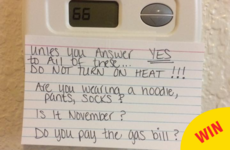 66
unless you Answer YES
to All of these...
DO NOT TURN ON HEAT !!!
Are you wearing a hoodie,
pants, socks?
Is it November?
Do you pay the gas bill?
WIN